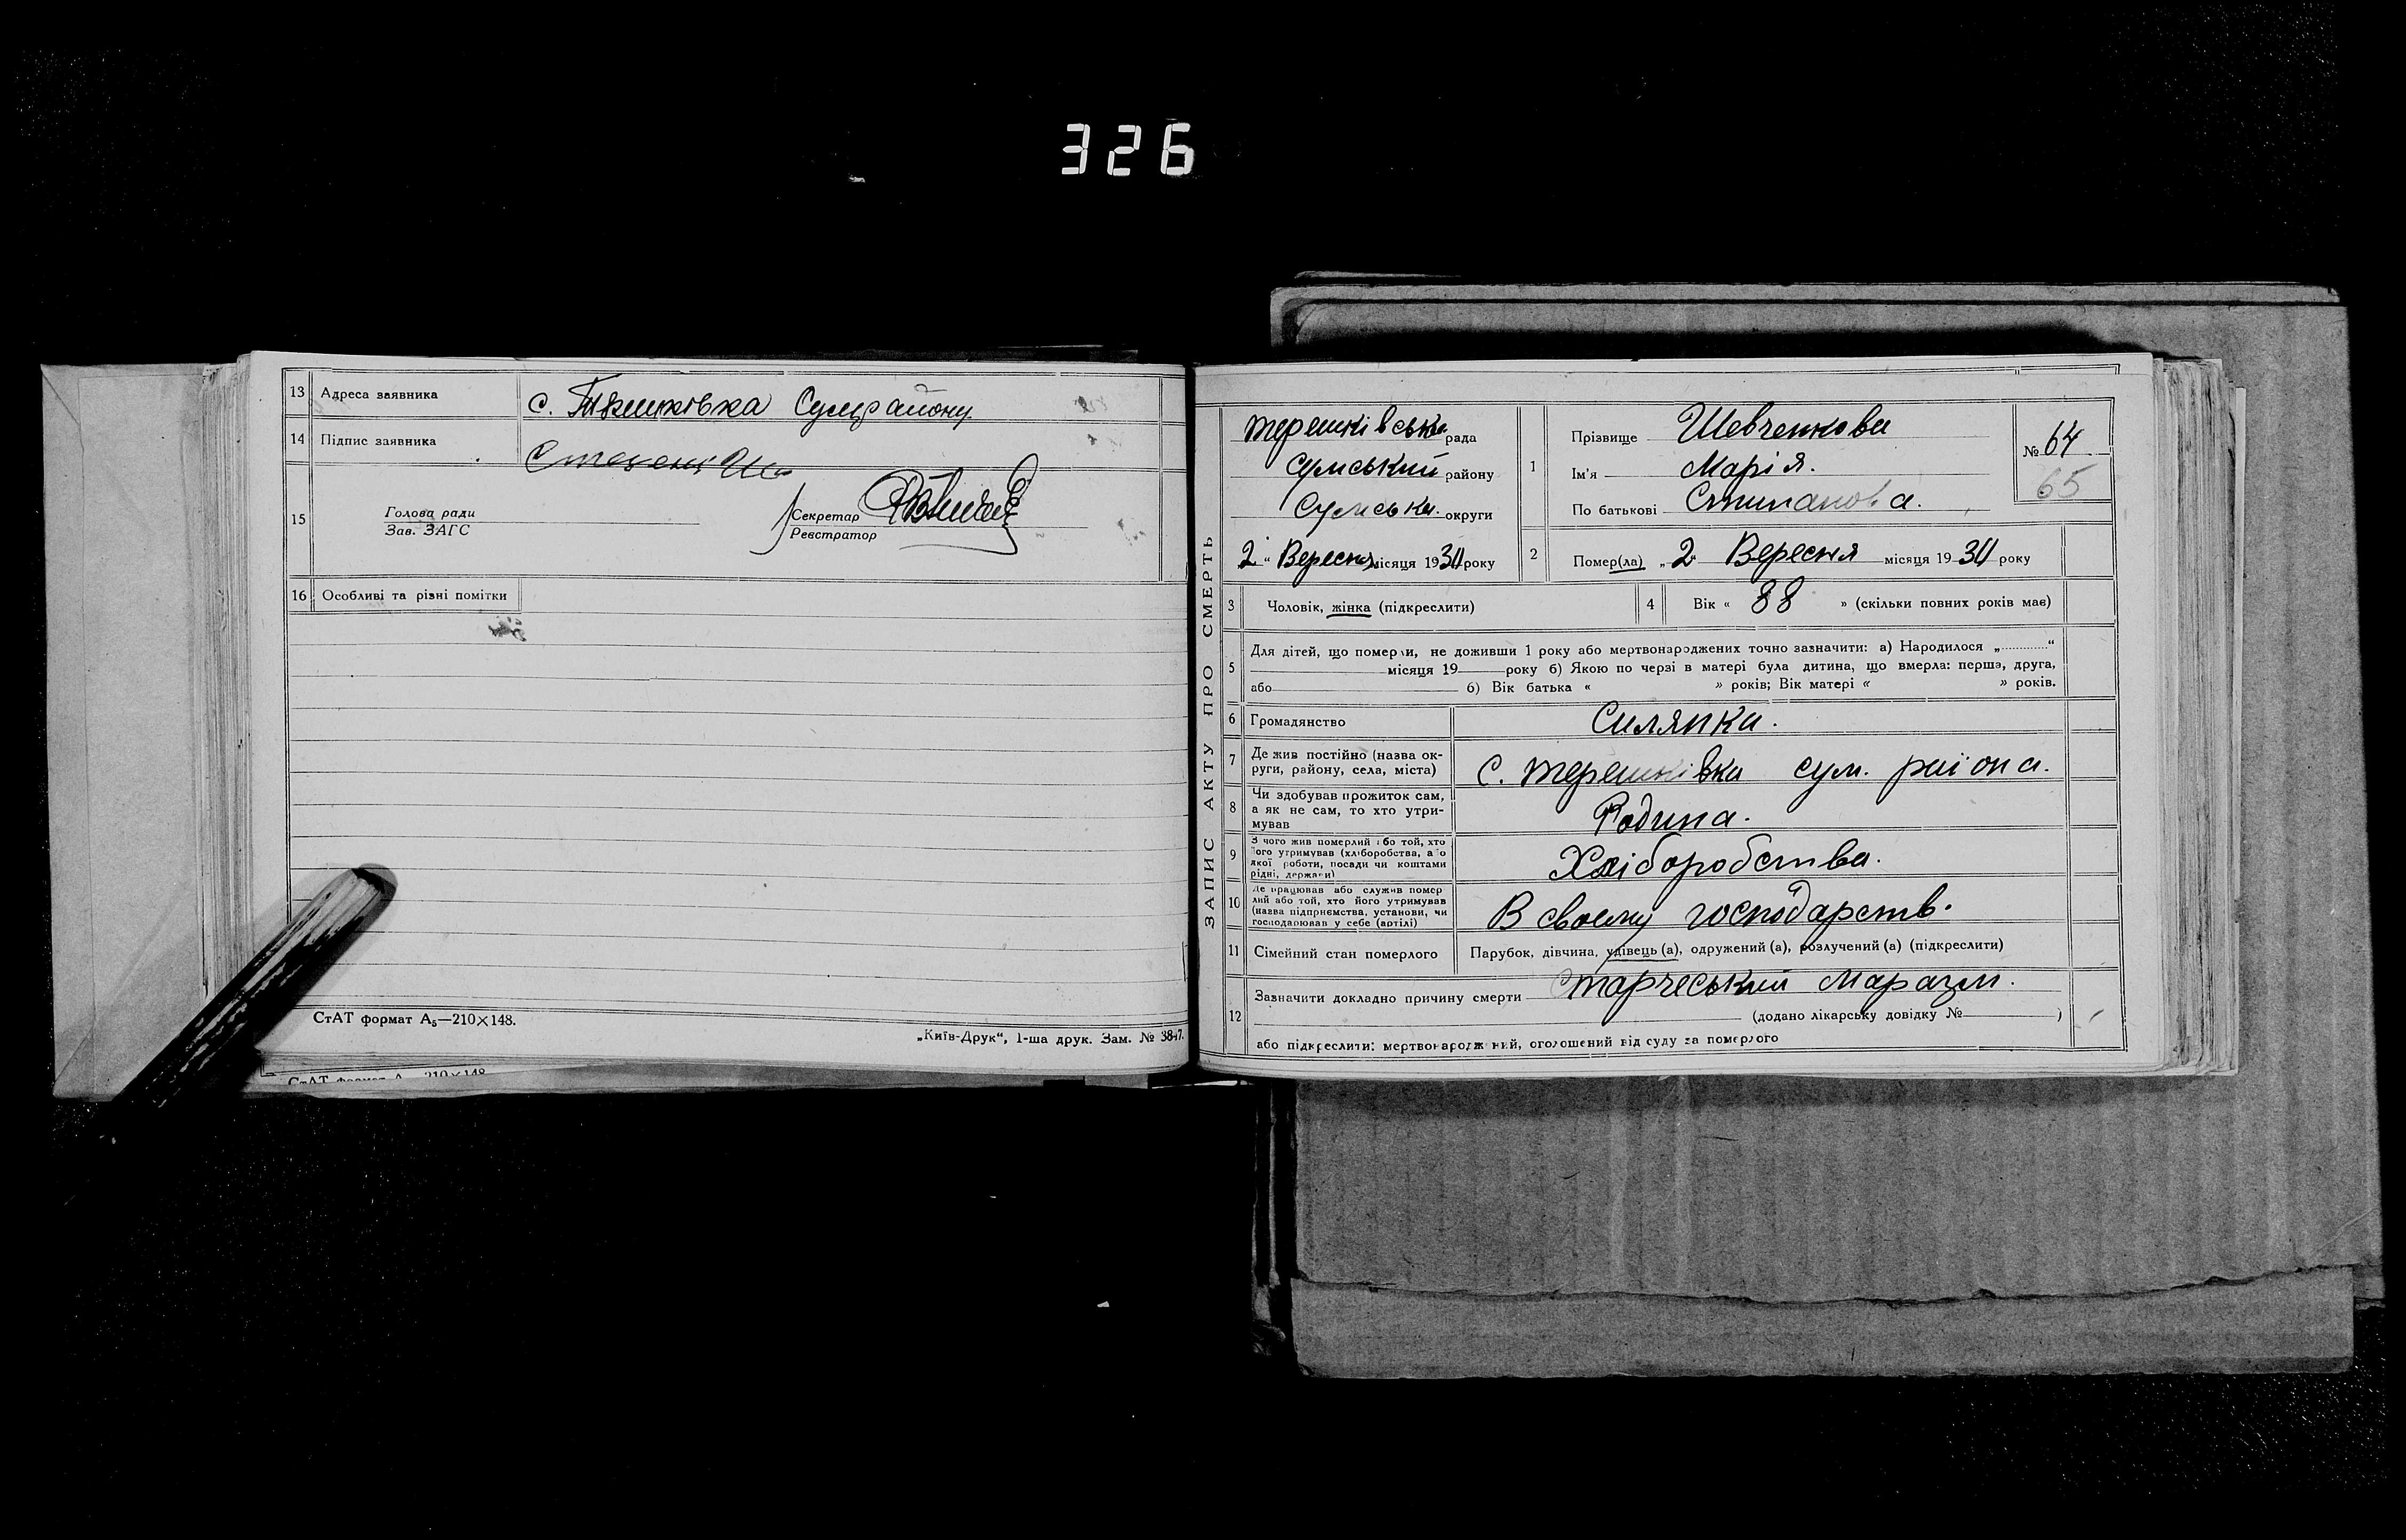 326
13 Адреса заявника с. Терешківка Сумрайону
14 Підпис заявника
15 Голова ради
Зав. ЗАГС
Секретар
Реєстратор
16 Особливі та різні помітки
СтАТ формат А₅—210×148.
„Київ-Друк“, 1-ша друк. Зам. № 3847.
ЗАПИС АКТУ ПРО СМЕРТЬ
Терешківська рада
Сумський району
Сумська округи
2 “ Вересня місяця 1930 року
1 Прізвище Шевченкова
Ім'я Марія.
По батькові Стипанова.
№ 64
65
2 Помер(ла) „2“ Вересня місяця 1930 року
3 Чоловік, жінка (підкреслити)
4 Вік « 88 » (скільки повних років має)
5 Для дітей, що померли, не доживши 1 року або мертвонароджених точно зазначити: а) Народилося „............“
місяця 19 року б) Якою по черзі в матері була дитина, що вмерла: перша, друга,
або б) Вік батька « » років; Вік матері « » років.
6 Громадянство Силянка.
7 Де жив постійно (назва ок-
руги, району, села, міста) с. Терешківка сум. раіона.
8 Чи здобував прожиток сам,
а як не сам, то хто утри-
мував Родина.
9 З чого жив померлий або той, хто
його утримував (хліборобства, або
якої роботи, посади чи коштами
рідні, держави) Хліборобства.
10 Де працював або служив помер
лий або той, хто його утримував
(назва підприємства, установи, чи
господарював у себе (артілі) В своєму господарств.
11 Сімейний стан померлого Парубок, дівчина, удівець (а), одружений (а), розлучений (а) (підкреслити)
12 Зазначити докладно причину смерти Старческий Маразм.
(додано лікарську довідку № )
або підкреслити: мертвонароджений, оголошений від суду за померлого
СтАТ формат А 210×148